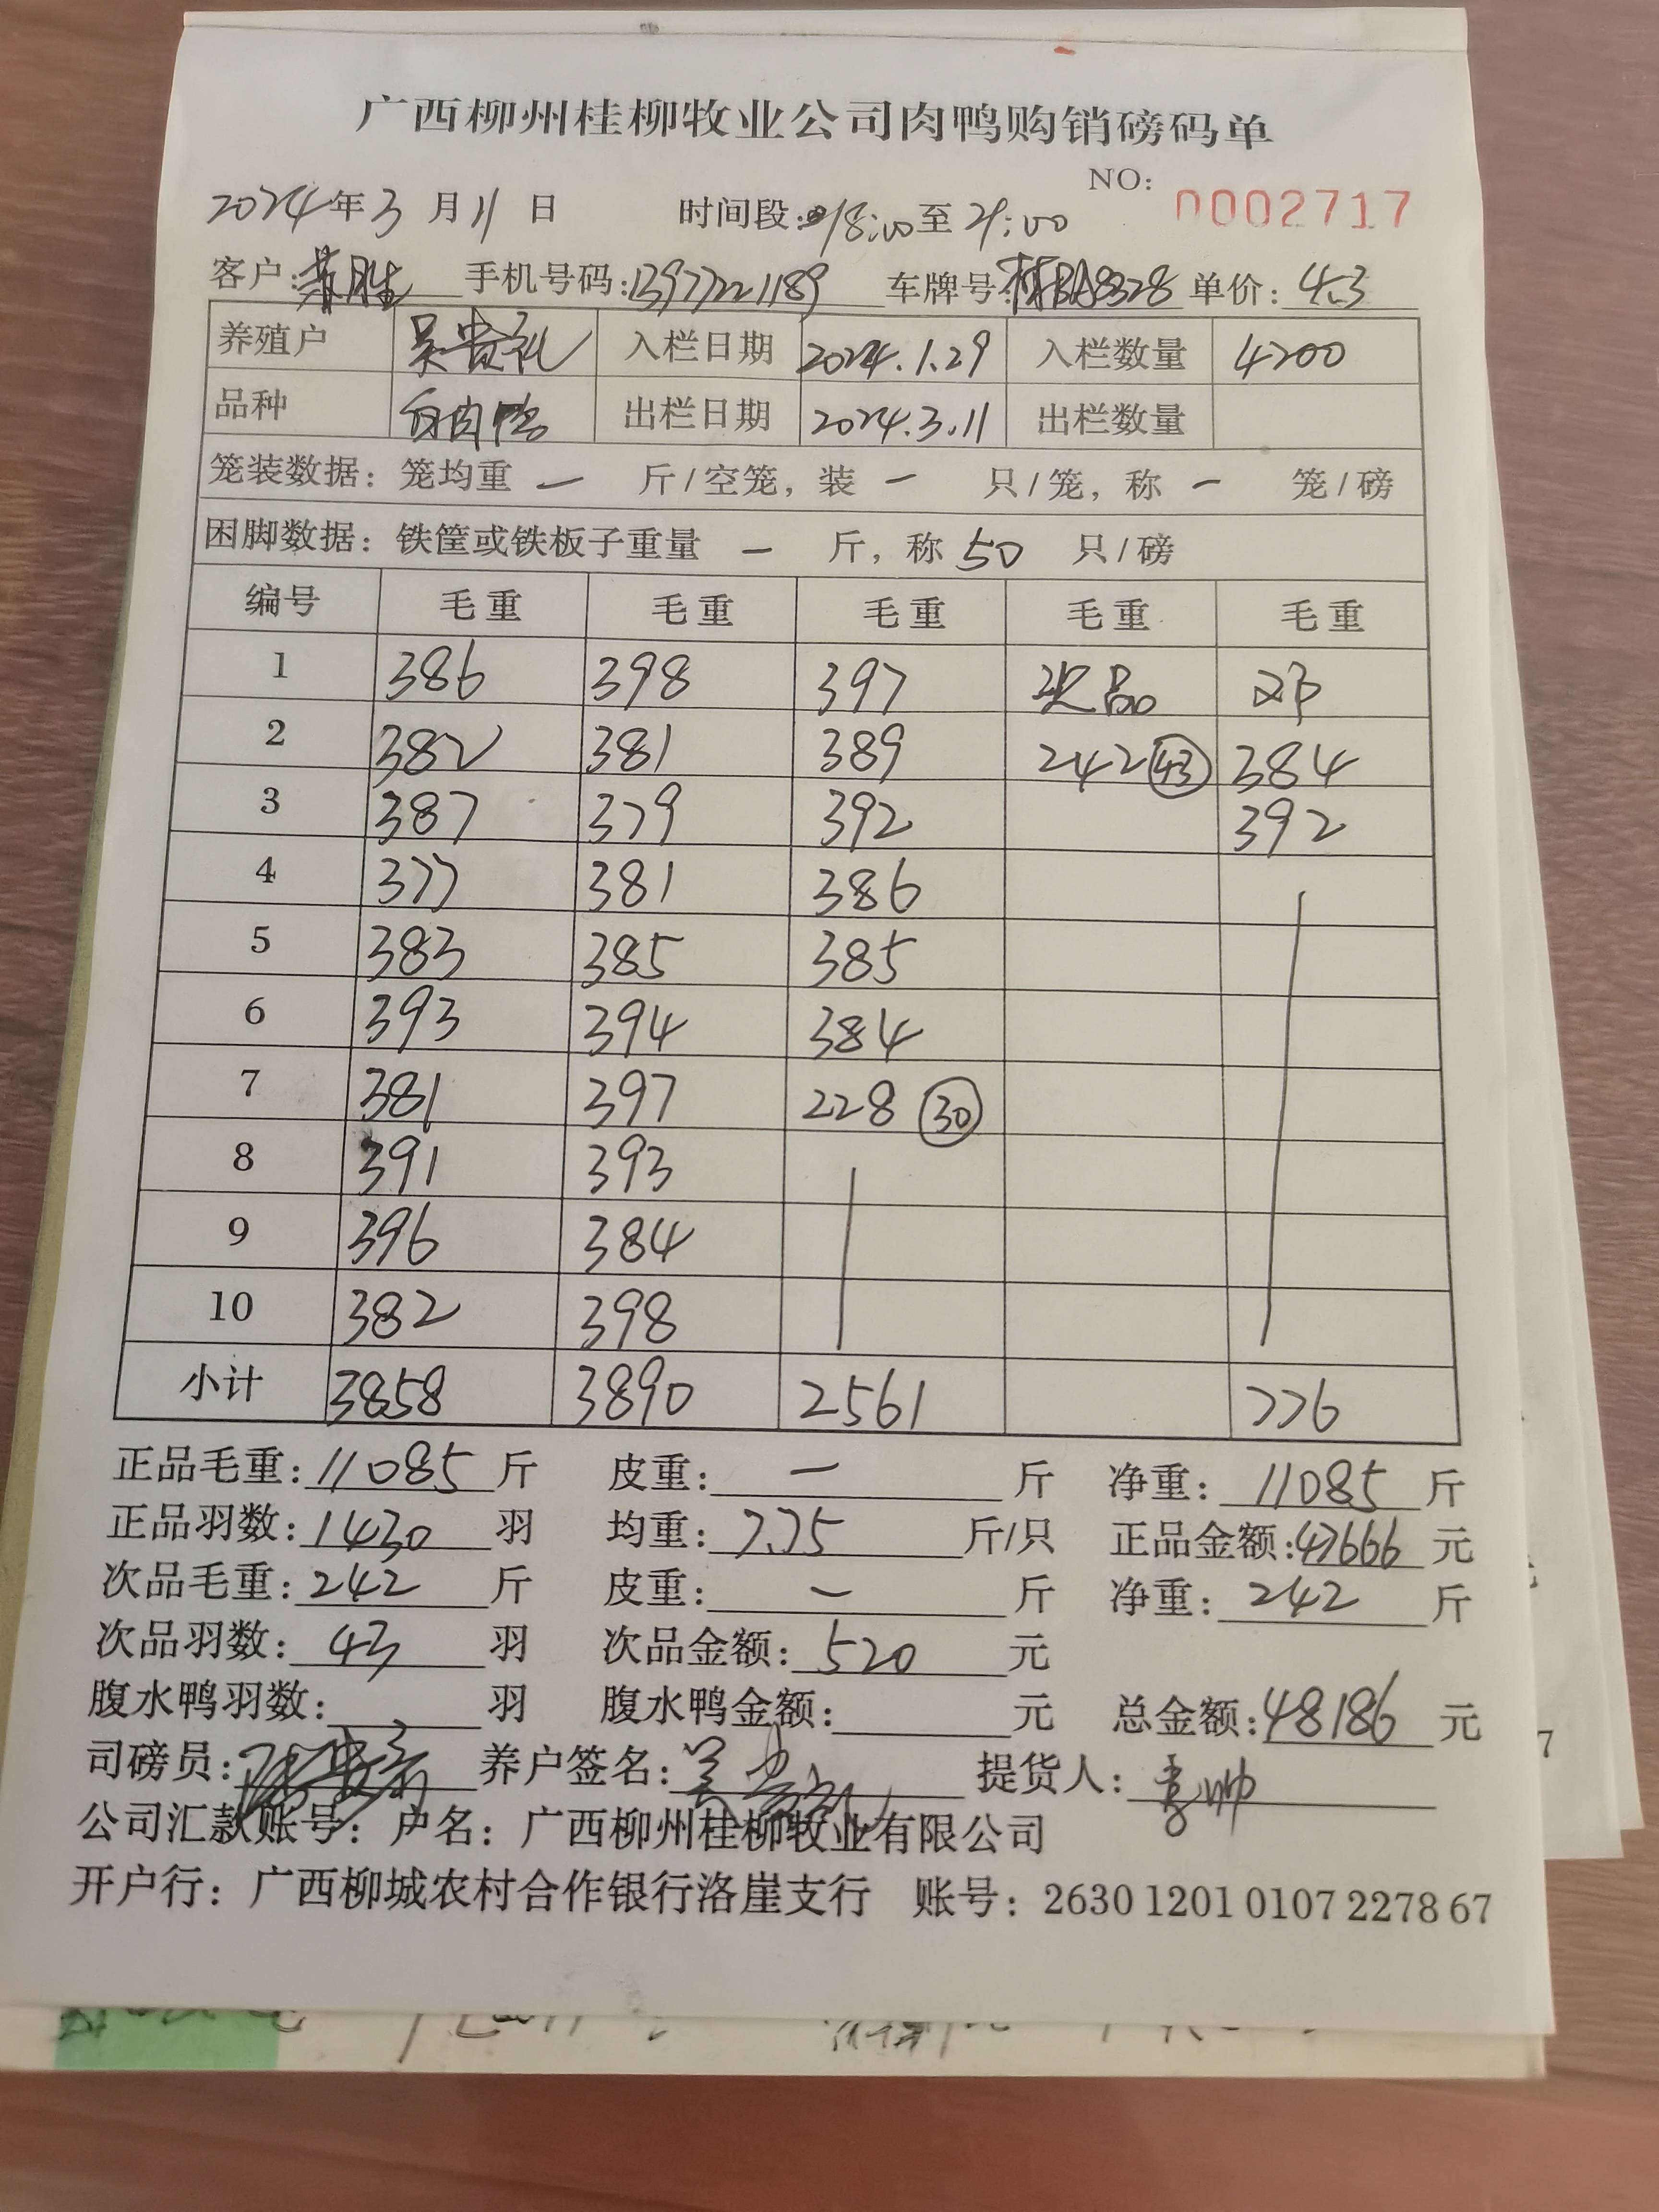 广西柳州桂柳牧业公司肉鸭购销磅码单
NO: 0002717
2024年3月11日 时间段:18:00至21:00
客户: 手机号码:13977221189 车牌号: 单价:4.3
养殖户 吴贵礼 入栏日期 2024.1.29 入栏数量 4200
品种 白肉鸭 出栏日期 2024.3.11 出栏数量
笼装数据:笼均重 — 斤/空笼,装 — 只/笼,称 — 笼/磅
困脚数据:铁筐或铁板子重量 — 斤,称 50 只/磅
编号 毛重 毛重 毛重 毛重 毛重
1 386 398 397 次品
2 382 381 389 242 43 384
3 387 379 392 392
4 377 381 386
5 383 385 385
6 393 394 384
7 381 397 228 30
8 391 393
9 396 384
10 382 398
小计 3858 3890 2561 776
正品毛重:11085斤 皮重:—斤 净重:11085斤
正品羽数:1430羽 均重:7.75斤/只 正品金额:47666元
次品毛重:242斤 皮重:—斤 净重:242斤
次品羽数:43羽 次品金额:520元
腹水鸭羽数: 羽 腹水鸭金额: 元 总金额:48186元
司磅员: 养户签名:吴贵礼 提货人:
公司汇款账号:户名:广西柳州桂柳牧业有限公司
开户行:广西柳城农村合作银行洛崖支行 账号:2630 1201 0107 2278 67